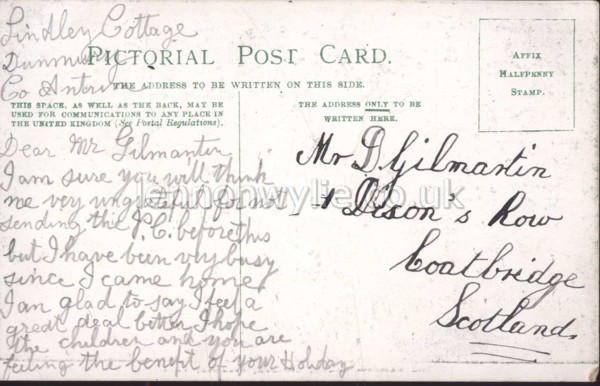 Lindley Cottage
Dunmurry
Co Antrim
PICTORIAL POST CARD.
THE ADDRESS TO BE WRITTEN ON THIS SIDE.
THIS SPACE, AS WELL AS THE BACK, MAY BE
USED FOR COMMUNICATIONS TO ANY PLACE IN
THE UNITED KINGDOM (See Postal Regulations).
THE ADDRESS ONLY TO BE
WRITTEN HERE.
AFFIX
HALFPENNY
STAMP.
Dear Mr Gilmartin
I am sure you will think
me very ungrateful for not
sending the P.C. before this
but I have been vey busy
since I came home
I an glad to say I feel a
great deal better I hope
the children and you are
feeling the benefit of your Holiday
Mr D. Gilmartin
Dixon's Row
Coatbridge
Scotland
lennonwylie.co.uk